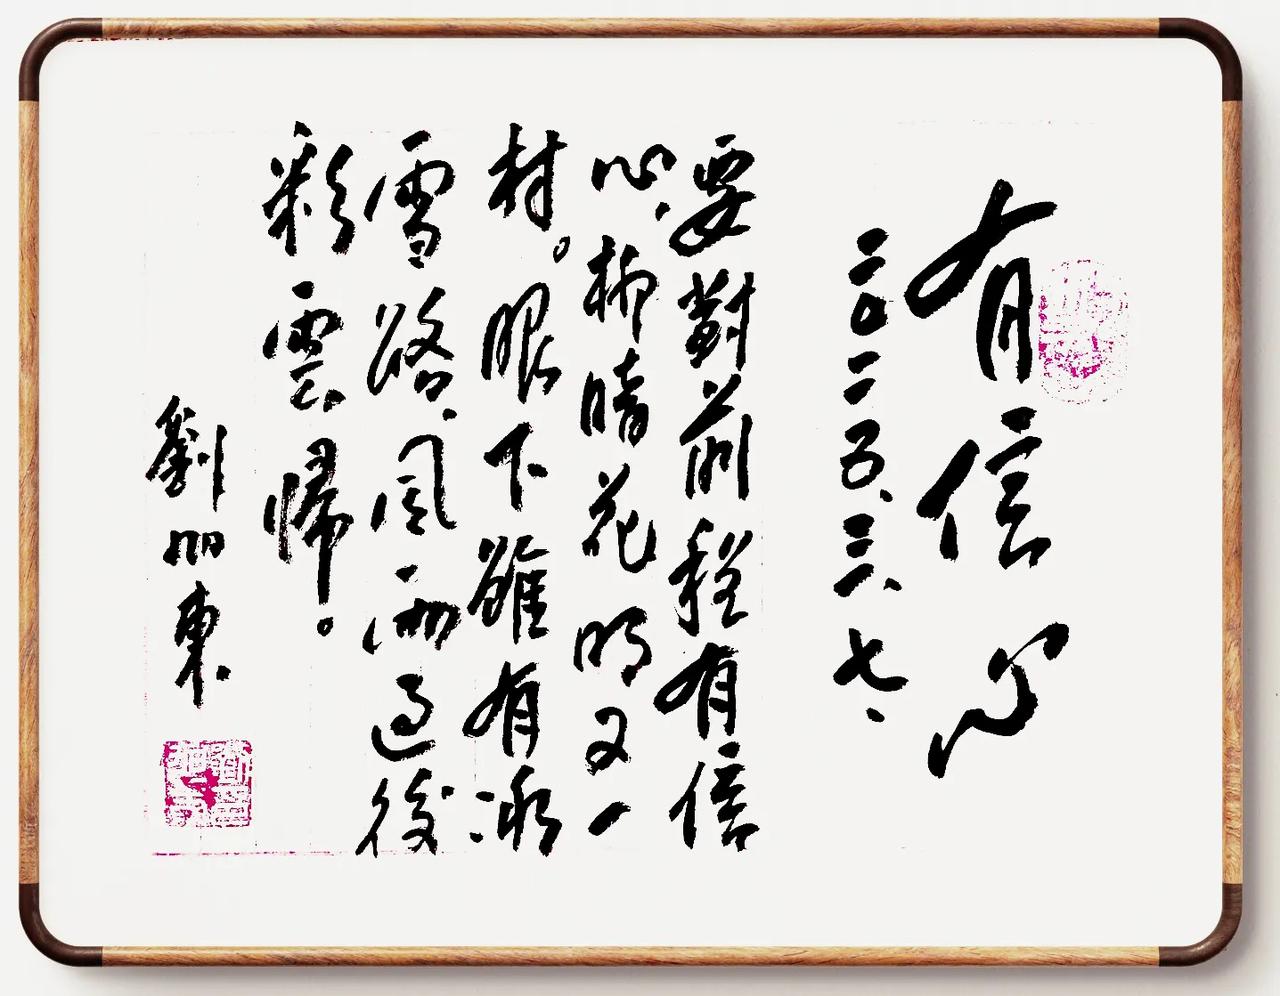 有信心
二〇二五、三、七、
要對前程有信
心、柳暗花明又一
村。眼下雖有冰
雪路、風雨過後
彩雲歸。
劉東